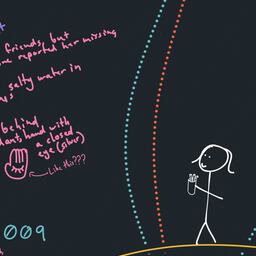 friends, but
one reported her missing
salty water in
behind
hand with
a closed
eye (silver)
Like this???
009